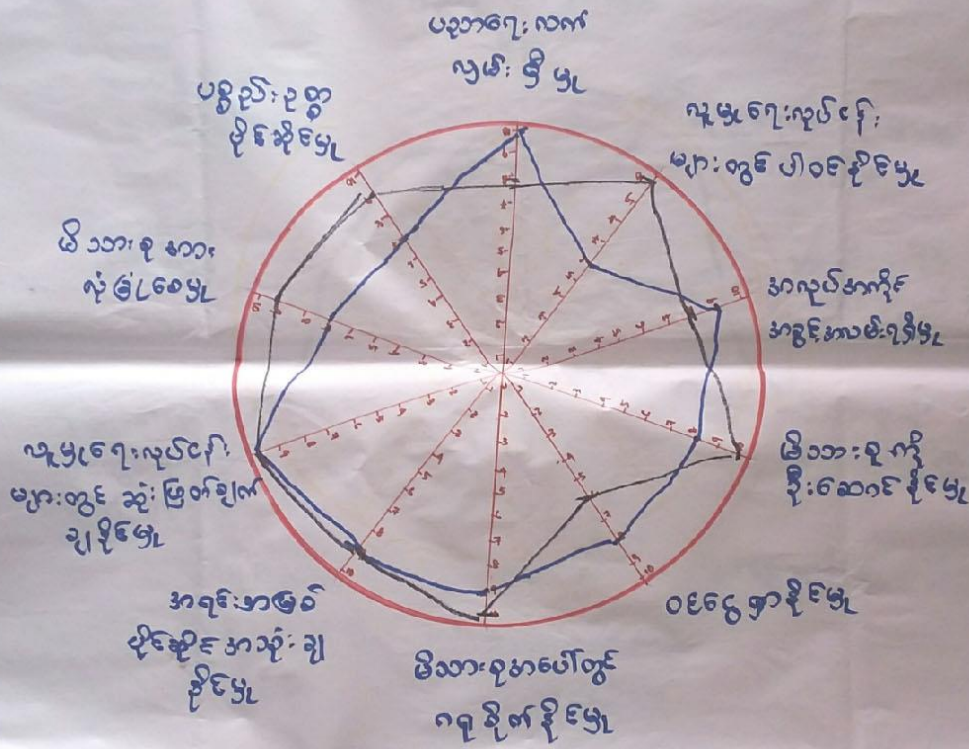 ပညာရေး လက်
လှမ်း မှီ မှု
လူမှုရေးလုပ်ငန်း
များတွင် ပါဝင်နိုင်မှု
အလုပ်အကိုင်
အခွင့်အလမ်းရရှိမှု
မိသားစုကို
ဦးဆောင်နိုင်မှု
ဝင်ငွေရှာနိုင်မှု
မိသားစုအပေါ်တွင်
ဂရုစိုက်နိုင်မှု
အရင်းအမြစ်
ပိုင်ဆိုင်အသုံးချ
နိုင်မှု
လူမှုရေးလုပ်ငန်း
များတွင် ဆုံးဖြတ်ချက်
ချနိုင်မှု
မိသားစုအား
လုံခြုံစေမှု
ပစ္စည်းဥစ္စာ
ပိုင်ဆိုင်မှု